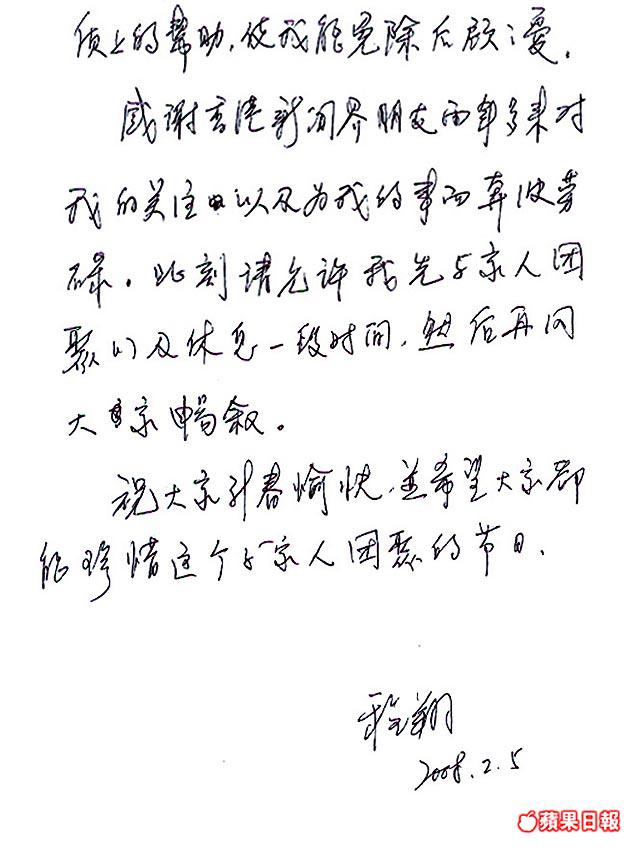 债上的帮助，使我能免除后顾之忧。
感谢香港新闻界朋友两年多来对
我的关注以及为我的事而奔波劳
碌。此刻请允许我先与家人团
聚以及休息一段时间，然后再同
大家畅叙。
祝大家新春愉快，並希望大家都
能珍惜这个与家人团聚的节日。
程翔
2008.2.5
蘋果日報